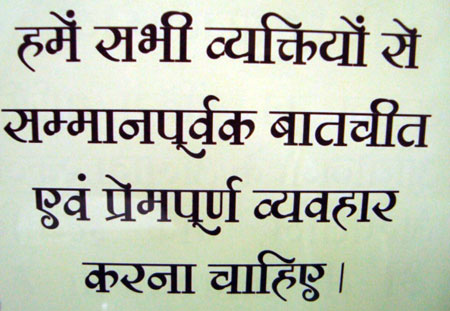 हमें सभी व्यक्तियों से
सम्मानपूर्वक बातचीत
एवं प्रेमपूर्ण व्यवहार
करना चाहिए।